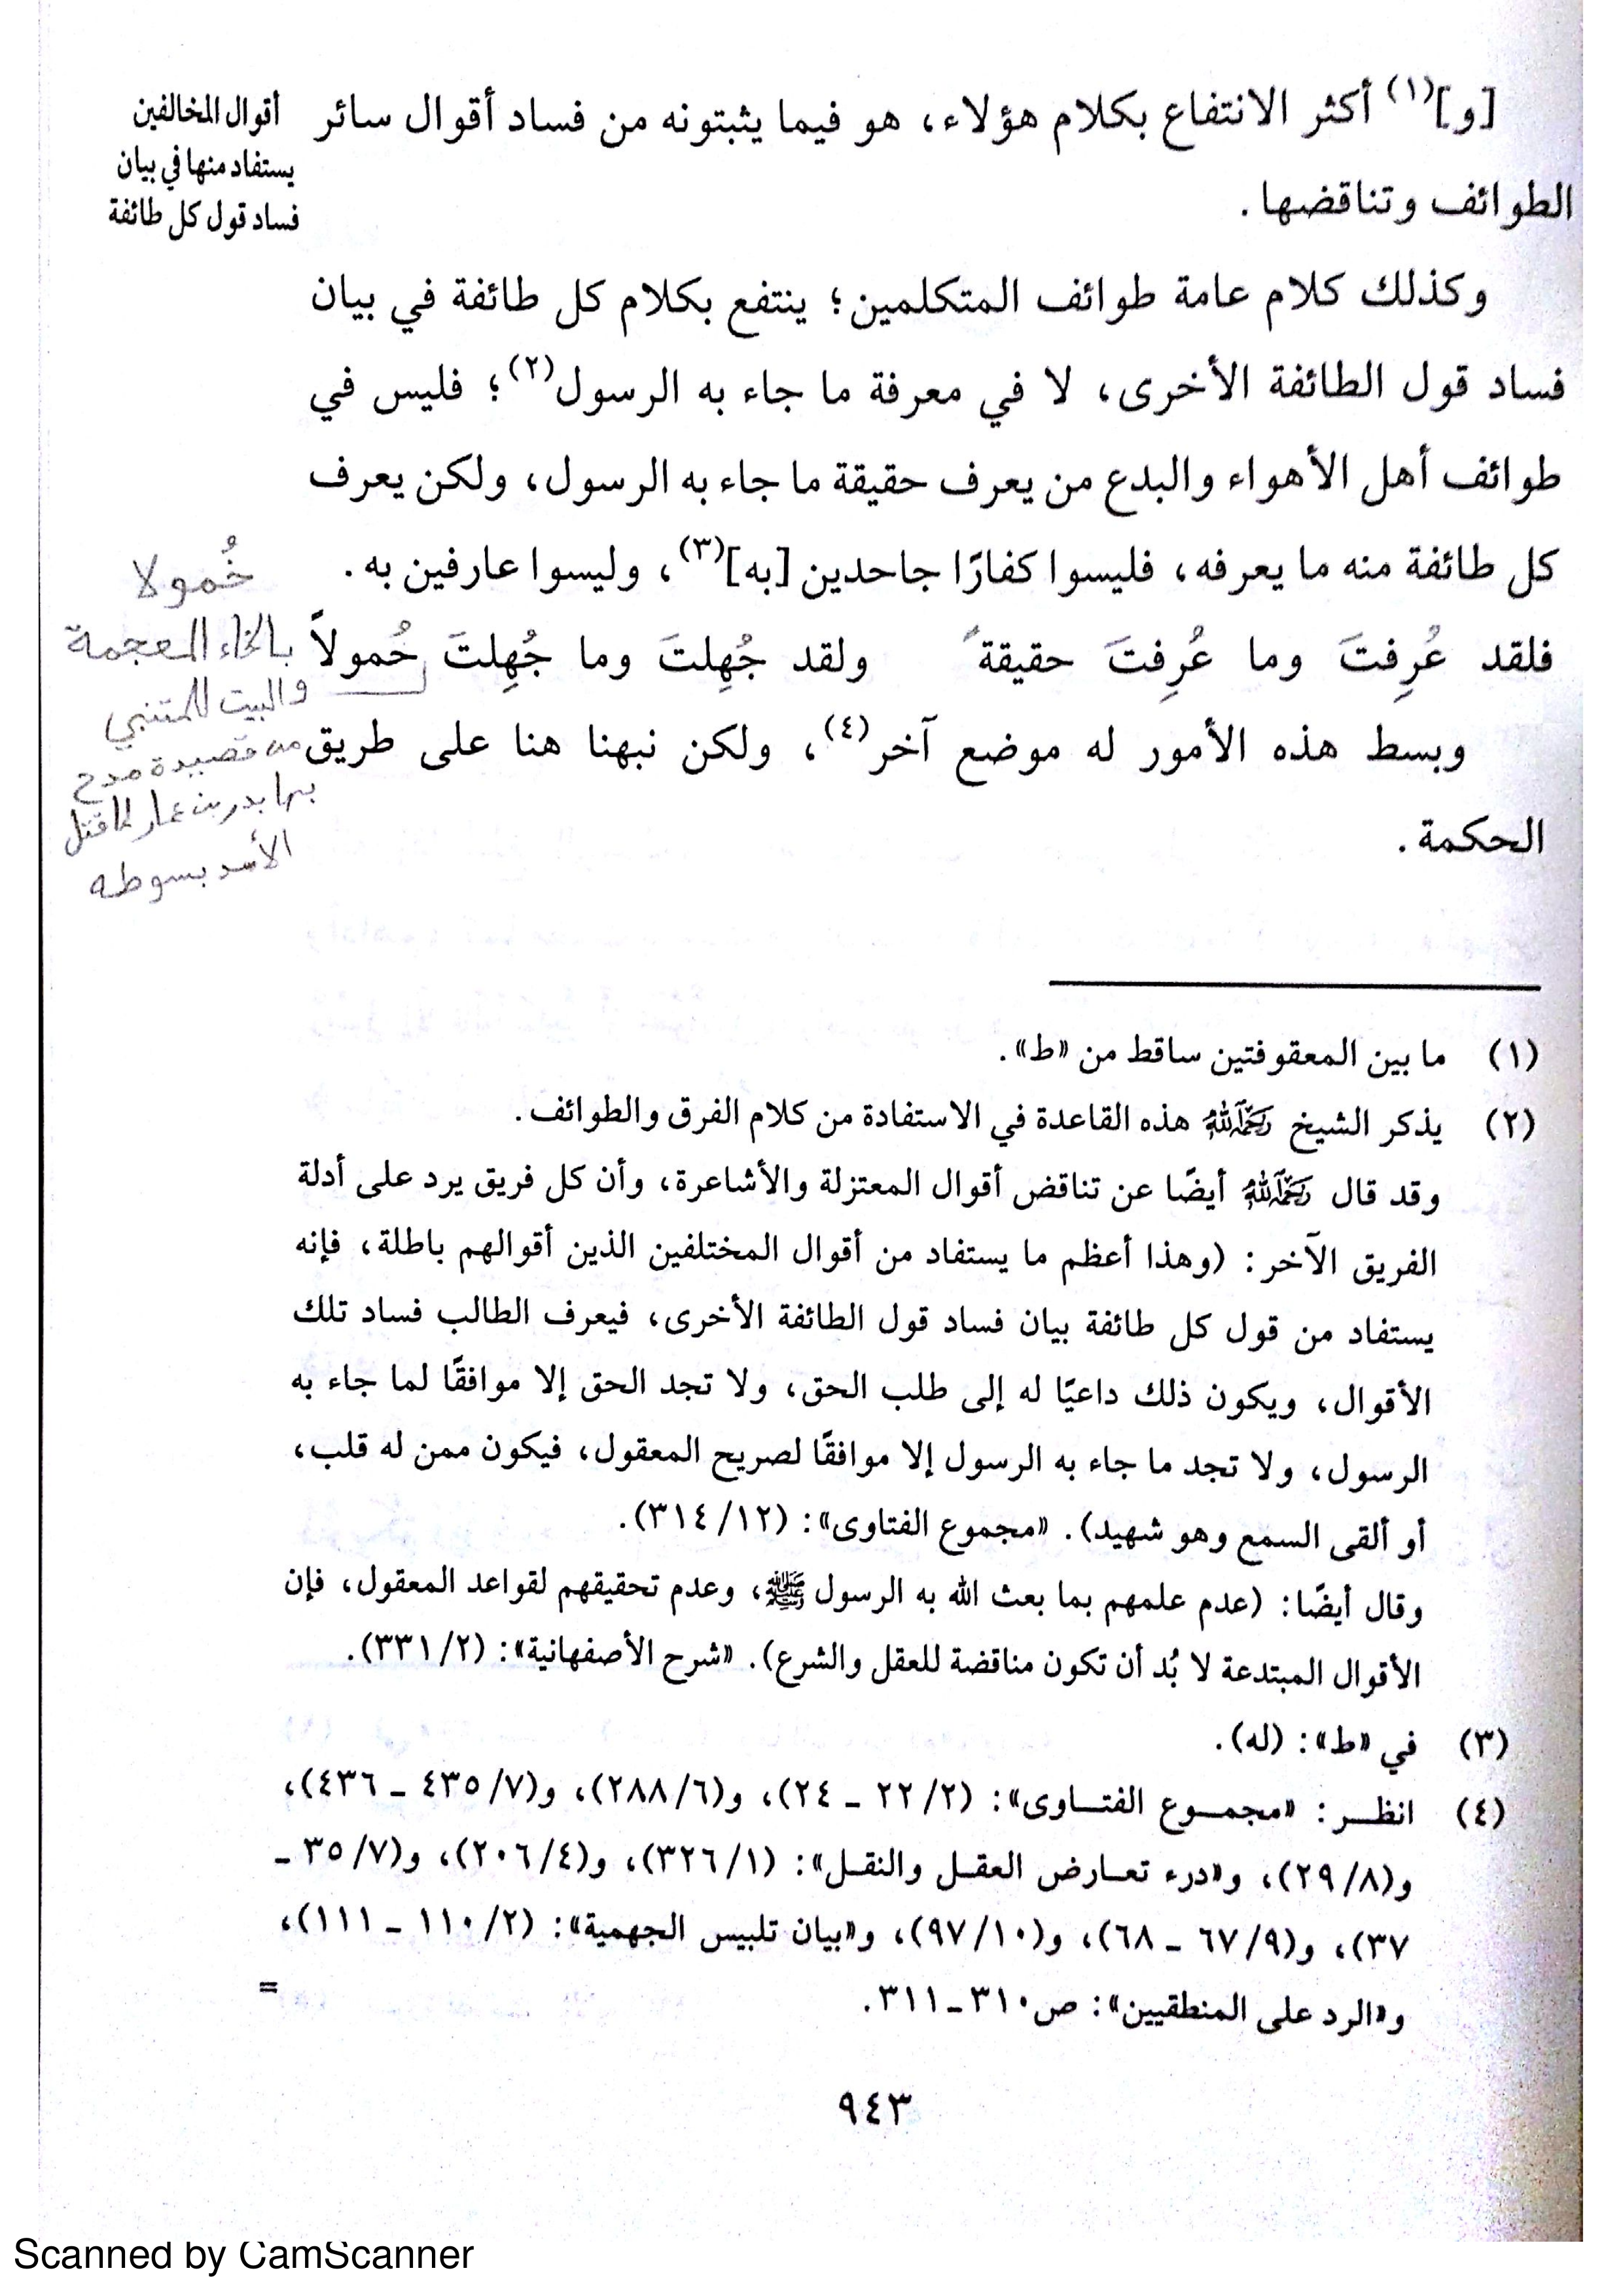 [و](١) أكثر الانتفاع بكلام هؤلاء، هو فيما يثبتونه من فساد أقوال سائر
الطوائف وتناقضها.
أقوال المخالفين
يستفاد منها في بيان
فساد قول كل طائفة
وكذلك كلام عامة طوائف المتكلمين؛ ينتفع بكلام كل طائفة في بيان
فساد قول الطائفة الأخرى، لا في معرفة ما جاء به الرسول(٢)؛ فليس في
طوائف أهل الأهواء والبدع من يعرف حقيقة ما جاء به الرسول، ولكن يعرف
كل طائفة منه ما يعرفه، فليسوا كفارًا جاحدين [به](٣)، وليسوا عارفين به.
فلقد عُرِفتَ وما عُرِفتَ حقيقةً ولقد جُهِلتَ وما جُهِلتَ خُمولاً
وبسط هذه الأمور له موضع آخر(٤)، ولكن نبهنا هنا على طريق
الحكمة.
خُمولا
بالخاء المعجمة
والبيت للمتنبي
من قصيدة مدح
بها بدر بن عمار لما قتل
الأسد بسوطه
(١) ما بين المعقوفتين ساقط من «ط».
(٢) يذكر الشيخ رَحِمَهُ اللهُ هذه القاعدة في الاستفادة من كلام الفرق والطوائف.
وقد قال رَحِمَهُ اللهُ أيضًا عن تناقض أقوال المعتزلة والأشاعرة، وأن كل فريق يرد على أدلة
الفريق الآخر: (وهذا أعظم ما يستفاد من أقوال المختلفين الذين أقوالهم باطلة، فإنه
يستفاد من قول كل طائفة بيان فساد قول الطائفة الأخرى، فيعرف الطالب فساد تلك
الأقوال، ويكون ذلك داعيًا له إلى طلب الحق، ولا تجد الحق إلا موافقًا لما جاء به
الرسول، ولا تجد ما جاء به الرسول إلا موافقًا لصريح المعقول، فيكون ممن له قلب،
أو ألقى السمع وهو شهيد). «مجموع الفتاوى»: (٣١٤/١٢).
وقال أيضًا: (عدم علمهم بما بعث الله به الرسول ﷺ، وعدم تحقيقهم لقواعد المعقول، فإن
الأقوال المبتدعة لا بُد أن تكون مناقضة للعقل والشرع). «شرح الأصفهانية»: (٣٣١/٢).
(٣) في «ط»: (له).
(٤) انظر: «مجموع الفتاوى»: (٢٢/٢ ـ ٢٤)، و(٢٨٨/٦)، و(٤٣٥/٧ ـ ٤٣٦)،
و(٢٩/٨)، و«درء تعارض العقل والنقل»: (٣٢٦/١)، و(٢٠٦/٤)، و(٣٥/٧ ـ
٣٧)، و(٦٧/٩ ـ ٦٨)، و(٩٧/١٠)، و«بيان تلبيس الجهمية»: (١١٠/٢ ـ ١١١)،
و«الرد على المنطقيين»: ص٣١٠ـ٣١١. =
٩٤٣
Scanned by CamScanner